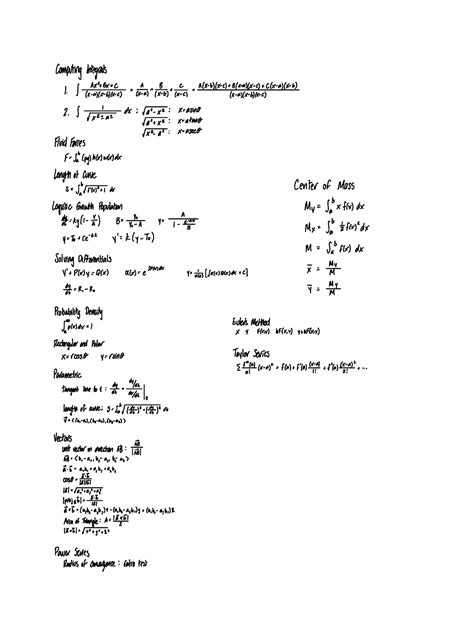 Computing Integrals
1. ∫ Ax²+Bx+C / (x-a)(x-b)(x-c) = A/(x-a) + B/(x-b) + C/(x-c) = A(x-b)(x-c)+B(x-a)(x-c)+C(x-a)(x-b) / (x-a)(x-b)(x-c)
2. ∫ 1/√(x²±a²) dx ; √(a²-x²) : x=asinθ
√(a²+x²) : x=atanθ
√(x²-a²) : x=asecθ
Fluid Forces
F=∫ₐᵇ (ρg) h(x) w(x) dx
Length of Curve
S=∫ₐᵇ √(f'(x)²+1) dx
Logistic Growth Population
dy/dt = ky(1-y/A) B= y₀/(y₀-A) y=
y' = k(y-T₀)
Solving Differentials
y'+P(x)y=Q(x)
Probability Density
p(x)dx=1
Rectangular and Polar
x=rcosθ y=rsinθ
Parametric
tangent line to t : dy/dx = dy/dt / dx/dt |t
length of curve: S=∫ₐᵇ √((dx/dt)²+(dy/dt)²) dt
Vectors
unit vector in direction AB : AB/|AB|
AB = <b₁-a₁, b₂-a₂, b₃-a₃>
a·b = a₁b₁+a₂b₂+a₃b₃
cosθ = a·b/|a||b|
|a| = √(a₁²+a₂²+a₃²)
Area of Triangle: A= |a×b|/2
Power Series
Radius of Convergence : Ratio test
Center of Mass
My = ∫ₐᵇ x f(x) dx
Mx = ∫ₐᵇ ½ f(x)² dx
M = ∫ₐᵇ f(x) dx
x̄ = My/M
ȳ = Mx/M
Euler's Method
x y F(x,y) hF(x,y) y+hF(x,y)
Taylor Series
Σ fⁿ(a)/n! (x-a)ⁿ = f(a) + f'(a) (x-a)/1! + f''(a) (x-a)²/2! + ...